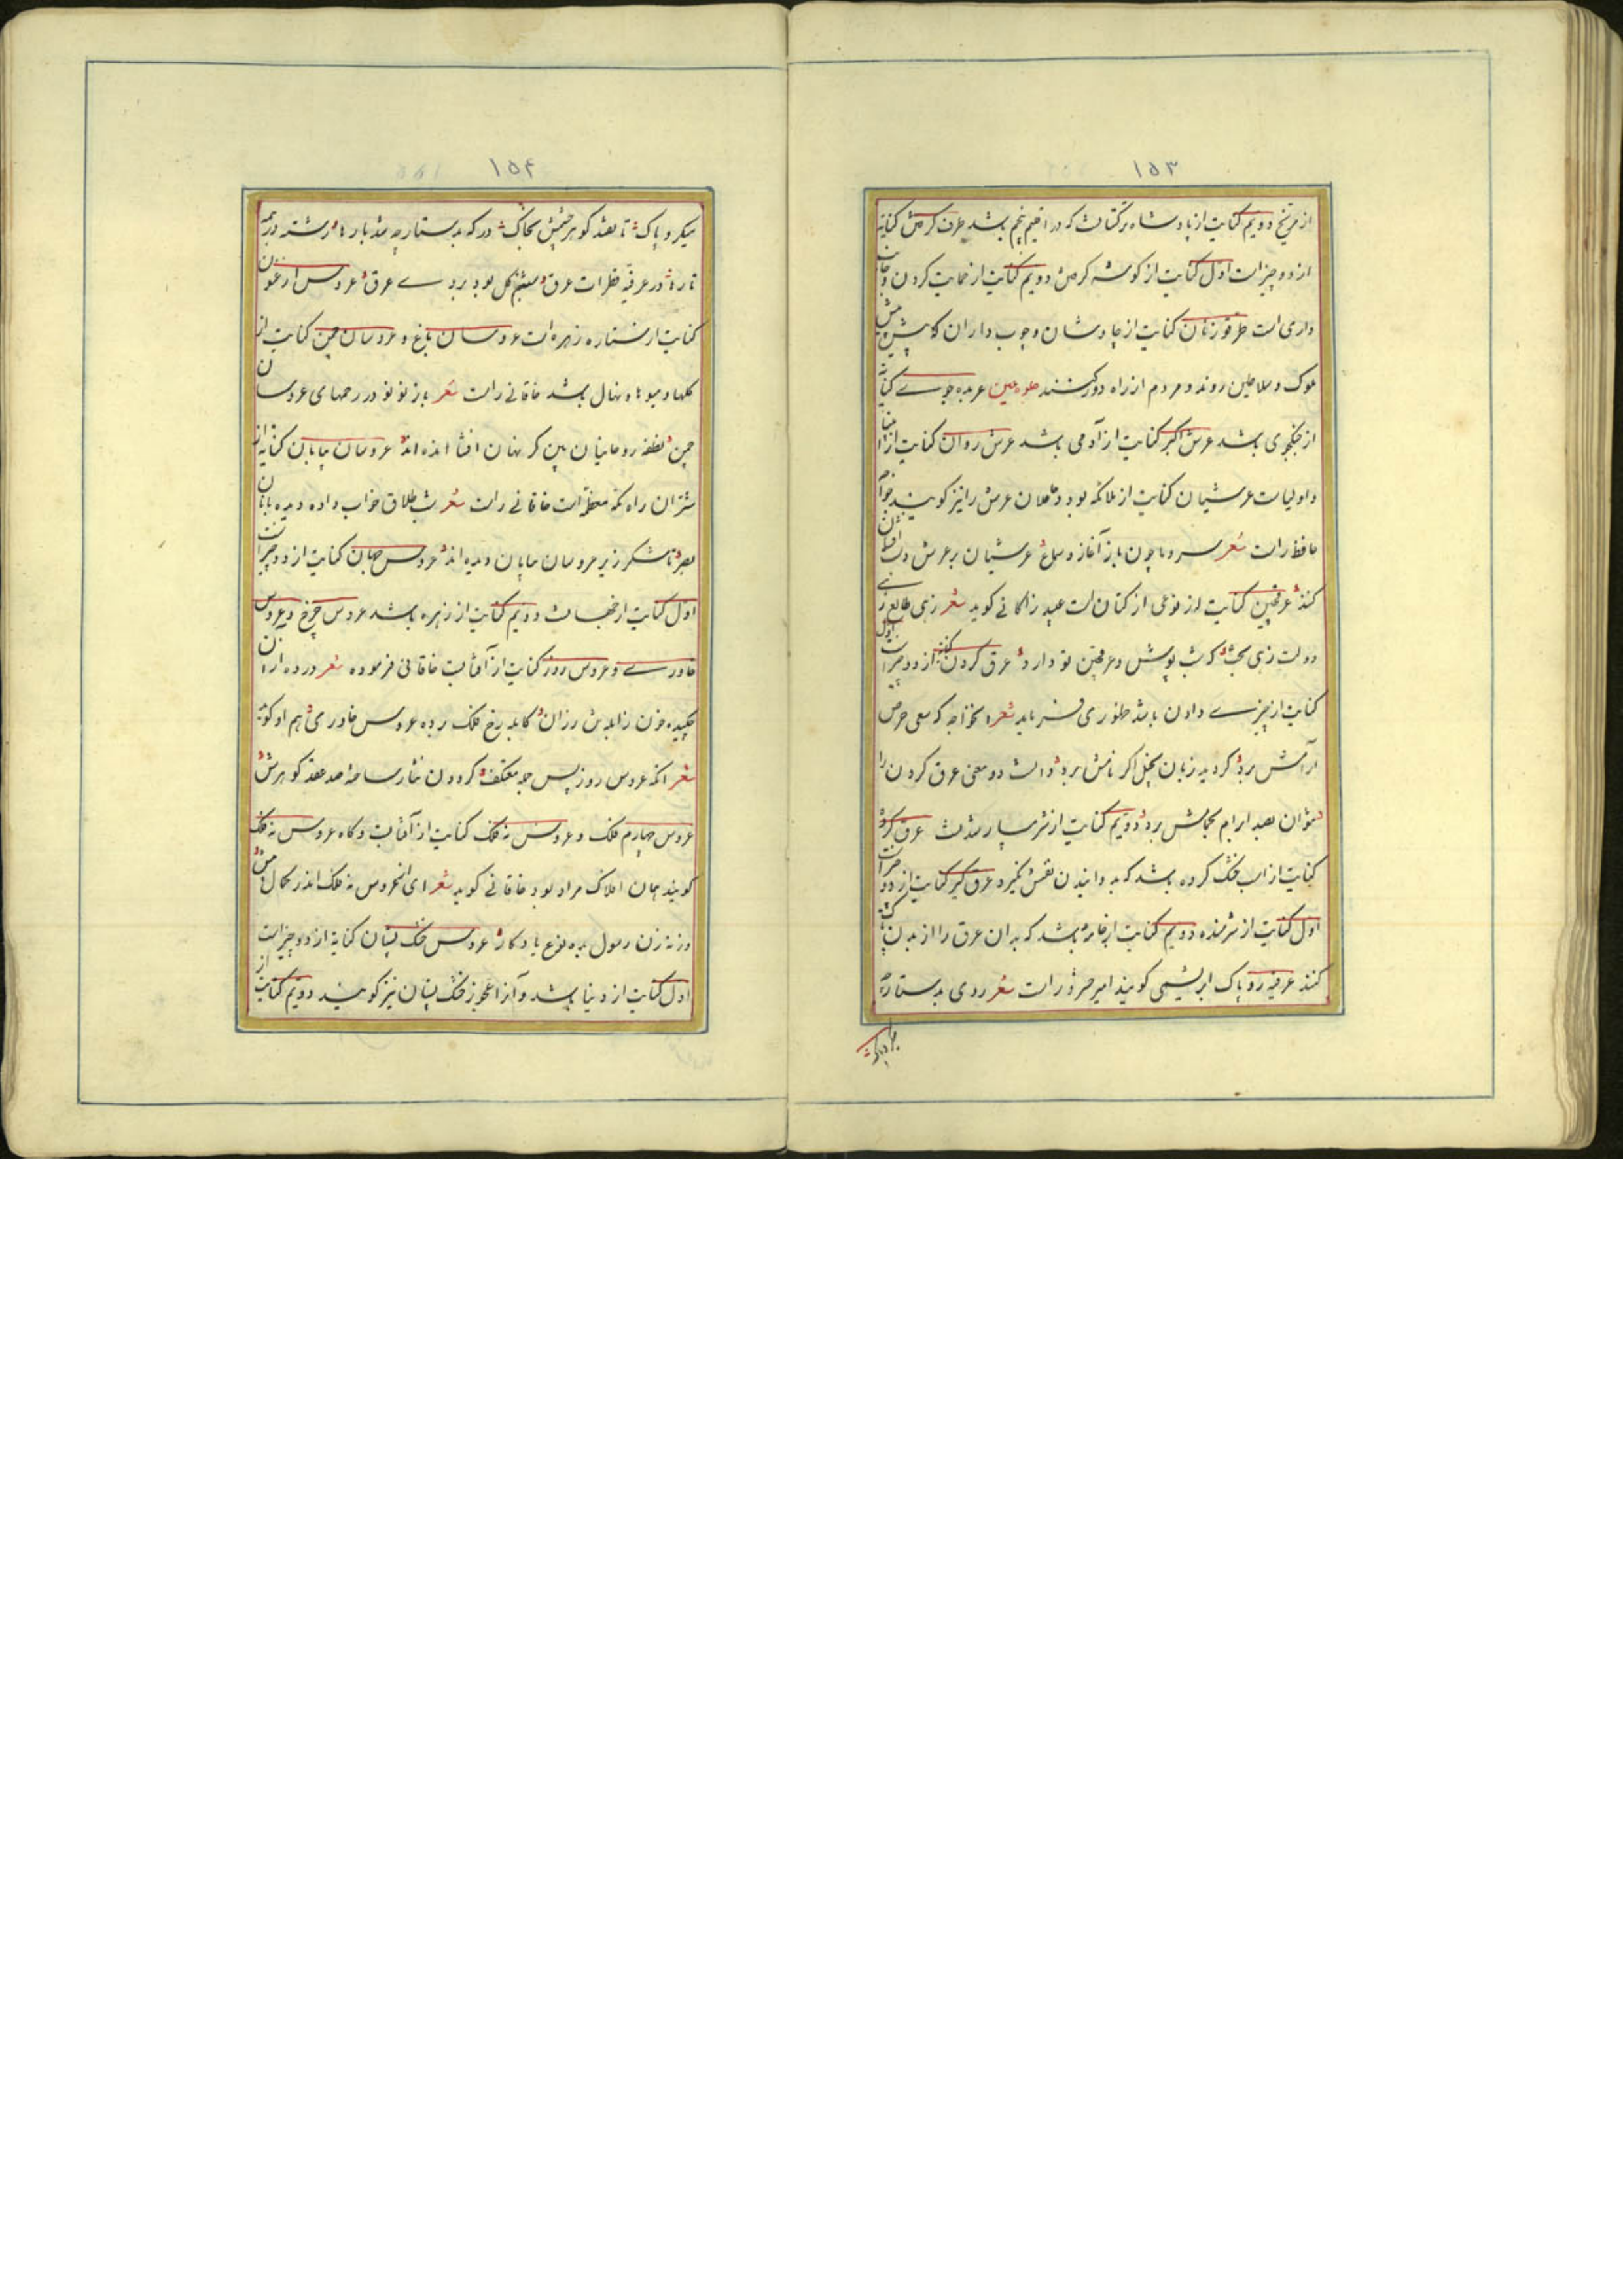 ۱۵۳
از مریخ دویم کنایت از پادشاه ترکستانست که در اقلیم پنجم باشد طرف کرفتن کنایة
از دو چیز است اول کنایت از کوشه کرفتن دویم کنایت از حمایت کردن و جانب
داری است طرقوزنان کنایت از چاوشان و چوب داران که پیش پیش
ملوک و سلاطین روند و مردم از راه دور کنند عربده جوے کنایة
از جنگجوی باشد عرش اکبر کنایت از آدمی باشد عرش روان کنایت از انبیا
و اولیاست عرشیان کنایت از ملائکه بود و حاملان عرش را نیز کویند خواجه
حافظ راست شعر سرود ما چون باز آغاز و سماع عرشیان بر عرش دست افشان
کند عرقچین کنایت از نوعی از کتان است عبید زاکانے کوید شعر زهی طالع زهے
دولت زهی بخت که شب پوش و عرقچین تو دارد عرق کردن کنایت از دو چیز است اول
کنایت از چیزے دادن باشد ظهوری فرماید شعر خواجه که سعی حرص
از آتش برد کردید زبان بخیل اکر نامش برد دانست دو معنی عرق کردن را
نتوان بصد ابرام بحمامش برد دویم کنایت از شرمسار شدنست عرق کرده
کنایت از اسب خنک کرده باشد که بدوانیدن نفس نکیرد عرق کیر کنایت از دو چیز است
اول کنایت از شرمنده دویم کنایت از جامه باشد که بدان عرق را از بدن پاک
کنند عرقیه روپاک ابریشمی کویند امیر خسرو راست شعر روی بدستارچه
۱۵۴
میکرد پاک تا نفتد کوهر چشمش بخاک در که بدستارچه شد بارها رشته در همه
تارها در عرقیه قطرات عرق شبنم کل بود بروے عرق عروس ارغنون
کنایت از ستاره زهره است عروسان باغ و عروسان چمن کنایت از
کلها و میوها و نهال باشد خاقانے راست شعر باز نو نو در رحمهای عروسان
چمن نطفه روحانیان بین کز نهان افشانده اند عروسان بیابان کنایة از
شتران راه مکه معظمه است خاقانے راست شعر شب طلاق خواب داده دیده بانان
بصر تا شکر ریز عروسان بیابان دیده اند عروس جهان کنایت از دو چیز است
اول کنایت از جهانست دویم کنایت از زهره باشد عروس چرخ و عروس
خاورے و عروس روز کنایت از آفتابست خاقانی فرموده شعر درده از آن
چکیده خون ز آبله تن رزان کابله رخ فلک برده عروس خاوری هم او کوید
شعر آنکه عروس روز پس حجله معتکف کردون نثار ساخته صد عقد کوهرش
عروس چهارم فلک و عروس نه فلک کنایت از آفتابست و کاه عروس نه فلک
کویند همان افلاک مراد بود خاقانے کوید شعر ای از عروس نه فلک اندر کمال پیش
وز نه زن رسول بده نوع یادکار عروس خشک پستان کنایة از دو چیز است
اول کنایت از دنیا باشد و آنرا عجوز خشک پستان نیز کویند دویم کنایت از